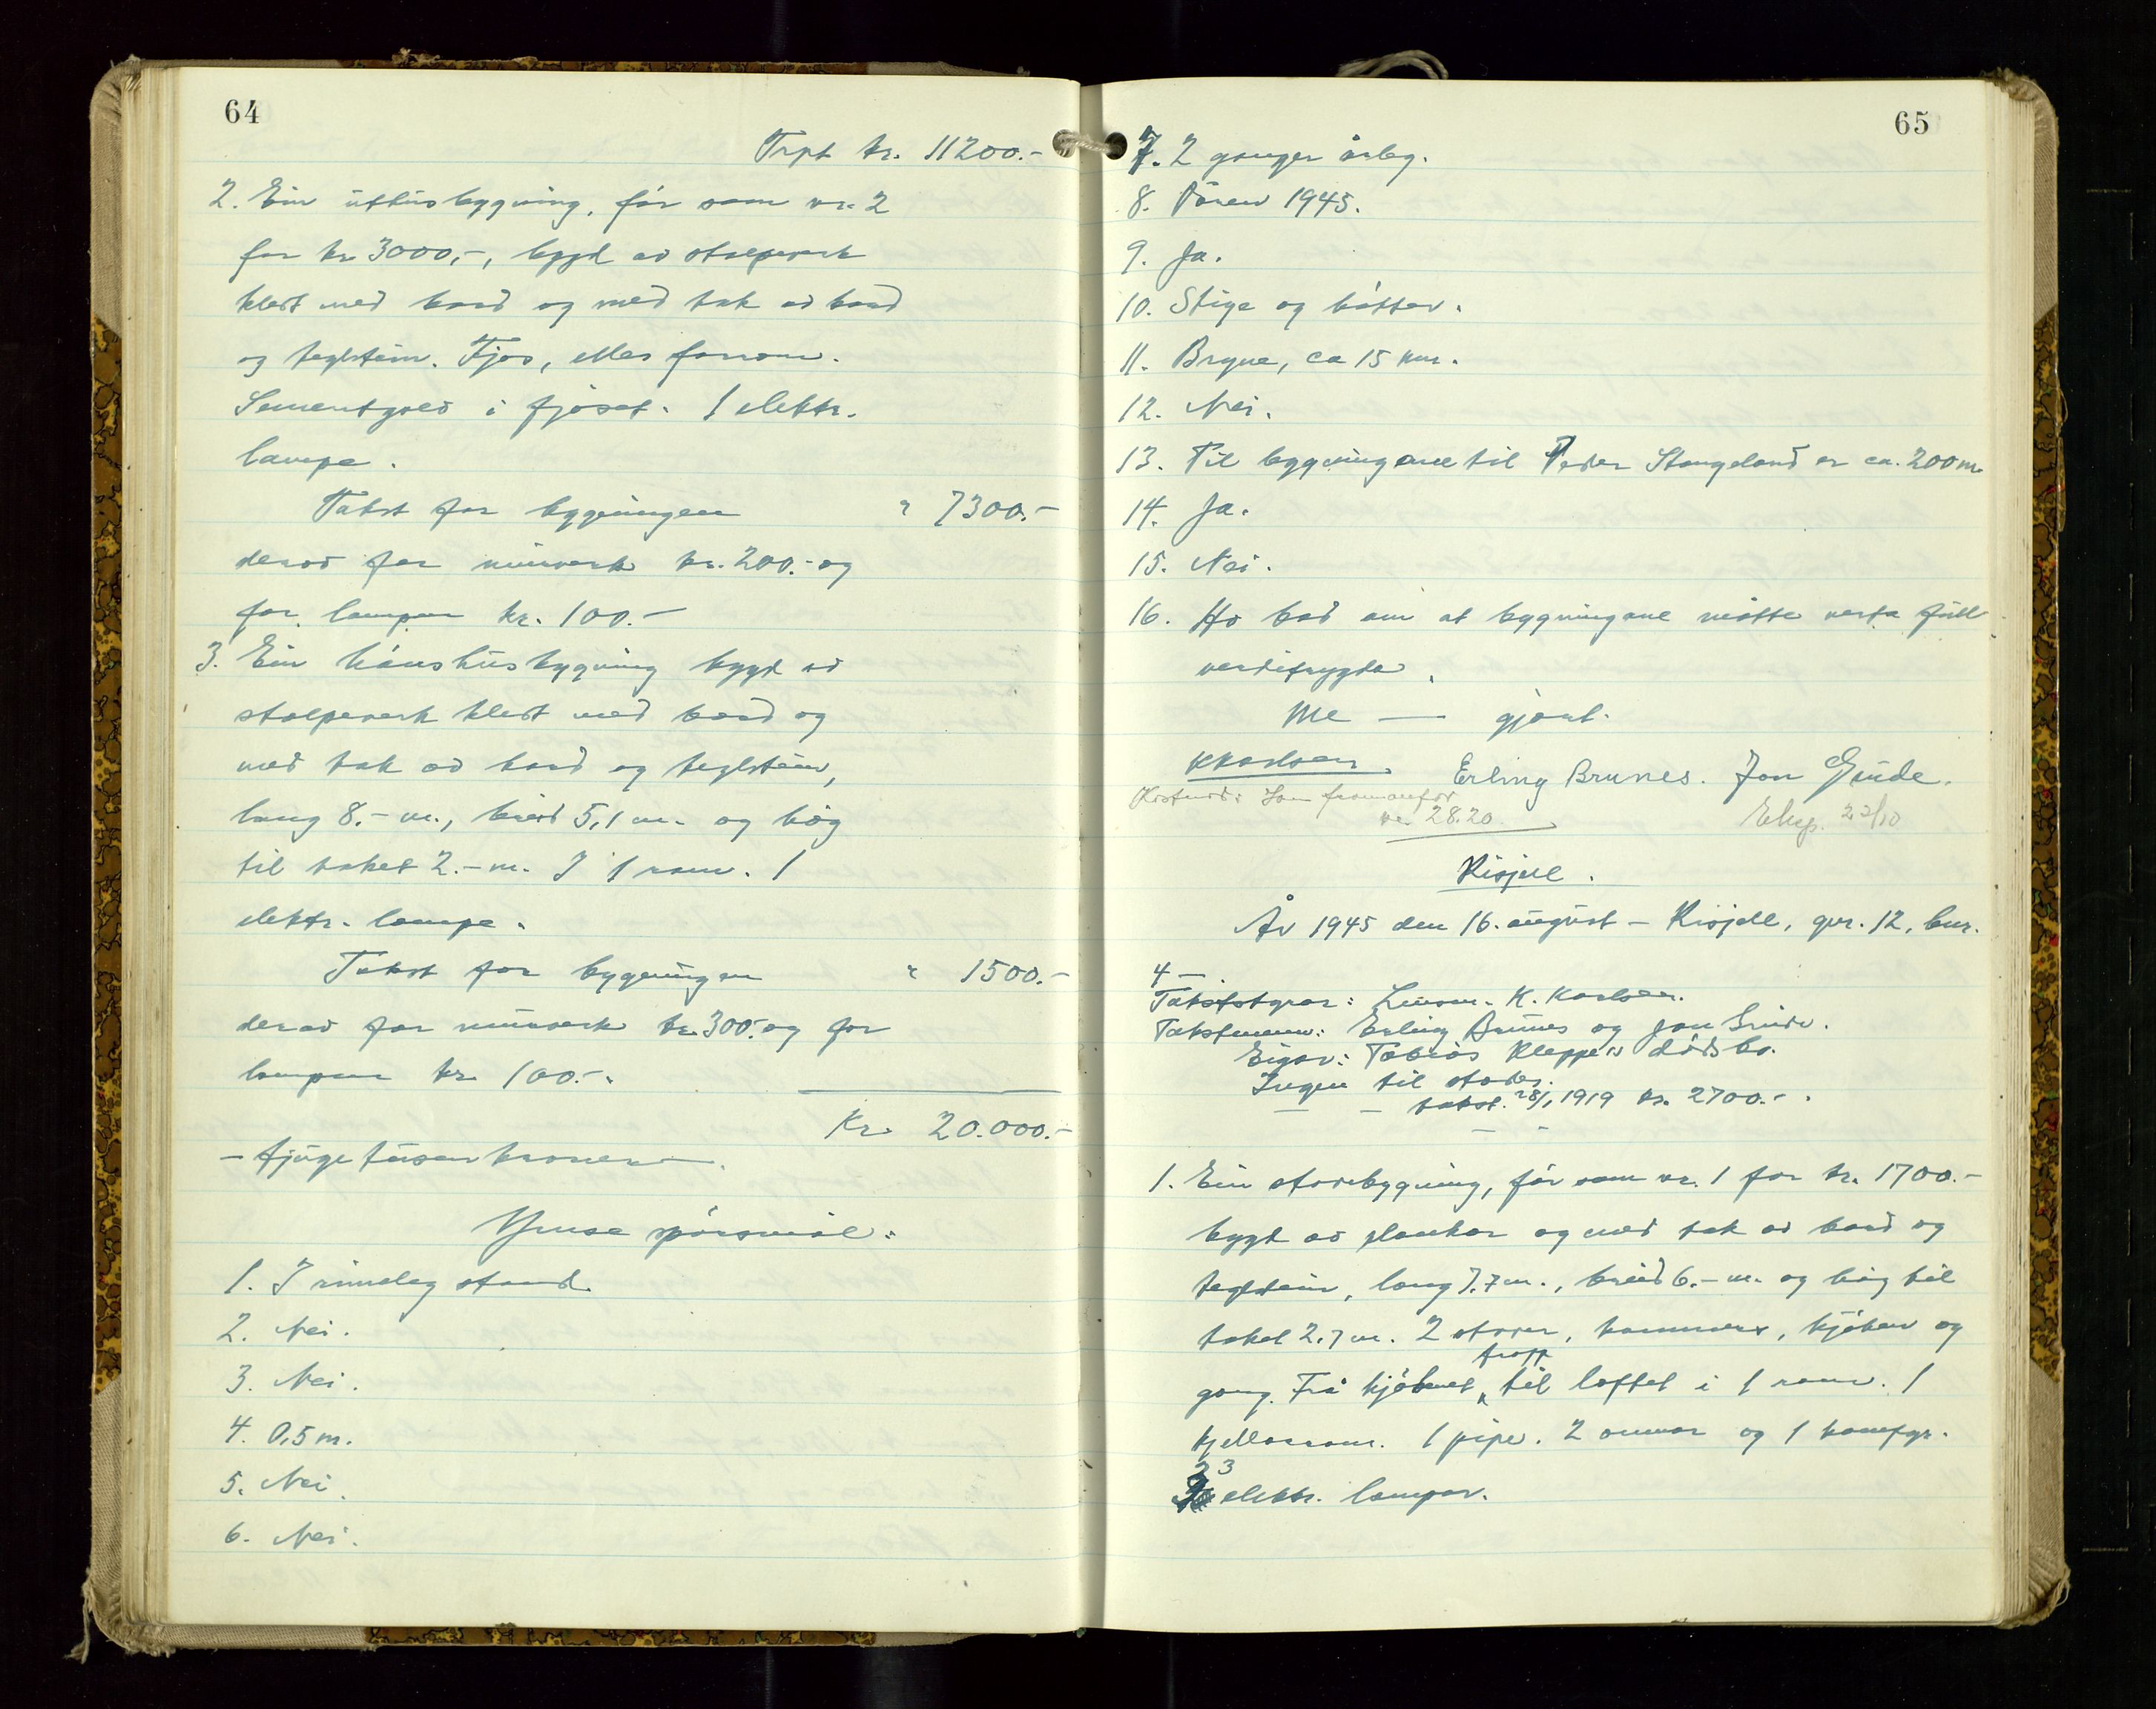 64
Trpt kr. 11200.-
2. Ein uthusbygning, før som nr. 2
for kr 3000,-, bygd av stolpeverk
kledt med bord og med tak av bord
og teglstein. Fjos, elles forrom.
Sementgolv i fjøset. 1 elektr.
lampe.
Takst for bygningen " 7300.-
derav for murverk kr. 200.- og
for lampen kr. 100.-
3. Ein hønshusbygning bygt av
stolpeverk kledt med bord og
med tak av bord og teglstein,
lang 8.- m., breid 5,1 m. og høg
til taket 2.- m. I 1 rom. 1
elektr. lampe.
Takst for bygningen " 1500.-
derav for murverk kr. 300.- og for
lampen kr. 100.-.
Kr. 20.000.-
- tjuge tusen kroner -.
Ymse spørsmål:
1. I rimeleg stand.
2. Nei.
3. Nei.
4. 0,5 m.
5. Nei.
6. Nei.
65
7. 2 gonger årleg.
8. Våren 1945.
9. Ja.
10. Stige og bøtter.
11. Bryne, ca 15 km.
12. Nei.
13. Til bygningane til Peder Stangeland er ca. 200 m.
14. Ja.
15. Nei.
16. Ho bad om at bygningane måtte verta full
verditrygda.
Me — gjort.
K Karlsen. Erling Brunes. Jon Grude.
Kostnad: Som framanfor
kr. 28.20. Eksp. 22/10
Risjell.
År 1945 den 16. august - Risjell, gnr. 12, bnr.
4 —
Takststyrar: Lensm. K. Karlsen.
Takstmenn: Erling Brunes og Jon Grude.
Eigar: Tobias Kleppes dødsbo.
Ingen til stades.
— — takst. 28/1 1919 kr. 2700.-.
— -
1. Ein stovebygning, før som nr. 1 for kr. 1700.-
bygt av plankar og med tak av bord og
teglstein, lang 7.7 m., breid 6.- m. og høg til
taket 2,7 m. 2 stover, kammers, kjøken og
gang. Frå kjøkenet tropp til loftet i 1 rom. 1
kjellarrom. 1 pipe. 2 omnar og 1 komfyr.
23 elektr. lampor.